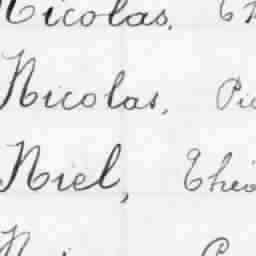 Nicolas,
Nicolas,
Niel, Théo